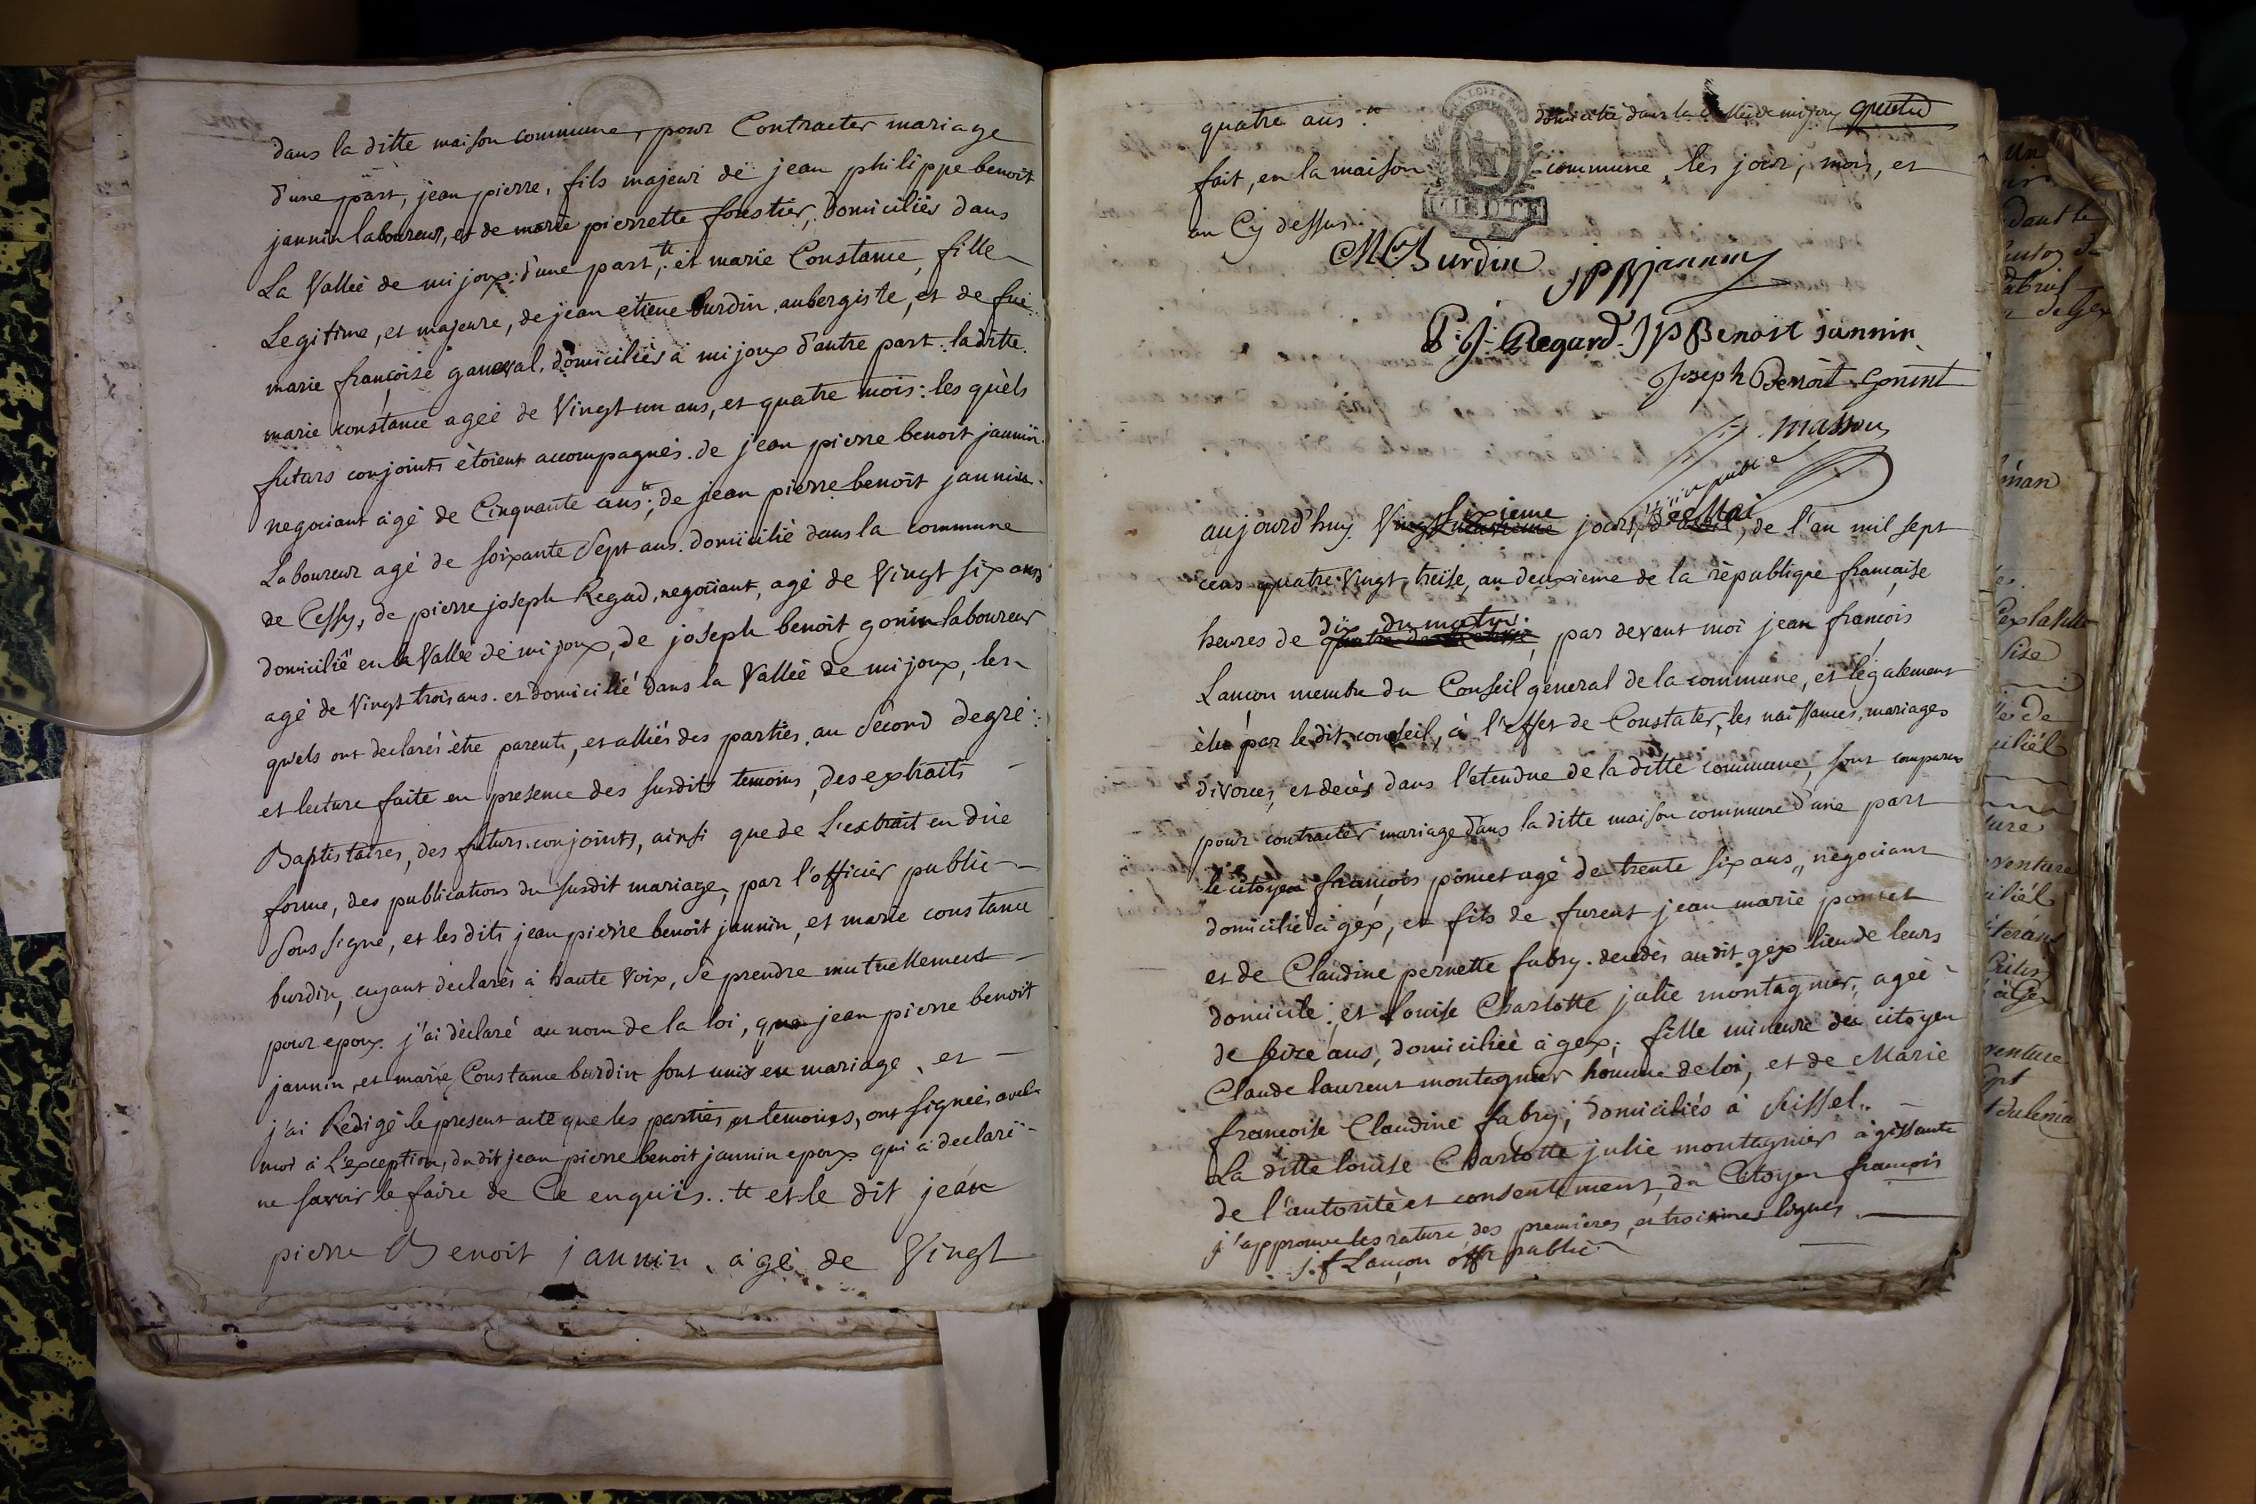 dans la ditte maison commune, pour Contracter mariage
d'une part, jean pierre, fils majeur de jean philippe benoit
jannin laboureur, et de marie pierrette forestier, domiciliés dans
La Vallée de mijoux: d'une part, tt et marie Constance, fille
Legitime, et majeure, de jean etiene burdin aubergiste, et de fuë
marie françoise ganeval, domiciliés à mijoux d'autre part: laditte
marie constance ageé de Vingt un ans, et quatre mois: les quèls
futurs conjoints ètoient accompagnés de jean pierre benoit jannin
negociant agé de Cinquante ans; de jean pierre benoit jannin
Laboureur agé de soixante Sept ans. domicilié dans la commune
de Cessy, de pierre joseph Regad, negociant, agé de Vingt six ans
domicilié en la Vallée de mijoux, de joseph benoit gonin laboureur
agé de Vingt trois ans. et domicilié dans la Vallée de mijoux, les
quels ont declarés ètre parents, et alliés des parties, au Second degré:
et lecture faite en presence des susdits temoins, des extraits
Baptistaires, des futurs conjoints, ainsi que de L'extrait en düe
forme, des publications du susdit mariage, par l'officier public
Sous signé, et les dits jean pierre benoit jannin, et marie constance
burdin, ayant declarés à haute voix, se prendre mutuellement
pour epoux. j'ai dèclaré au nom de la loi, que jean pierre benoit
jannin, et marie Constance burdin sont unis en mariage, et
j'ai Redigé le present acte que les parties, et temoins, ont signées avec
moi à L'exception, du dit jean pierre benoit jannin epoux qui a declaré
ne savoir le faire de Ce enquis.. tt et le dit jean
pierre Benoit jannin, agé de Vingt
quatre ans.. domicilié dans la Vallée de mijoux
fait, en la maison commune, les jour, mois, et
an Cy dessus
M C Burdin JPBjannin
P. J. Regard JPBenoit jannin
Joseph Benoit Gonint
masson
officier public
aujourd'huy Vingt Sixieme jour, de Mai, de l'an mil sept
cens quatre Vingt, treïse, an deuxieme de la rèpublique française
heures de dix du matin, par devant moi jean françois
Lançon membre du Conseil general de la commune, et légalement
èlu par le dit conseil, à l'effet de Constater, les naissances, mariages
divorces, et decès dans l'etendue de la ditte commune, sont comparus
pour contracter mariage dans la ditte maison commune d'une part
le citoyen françois pomet agé de trente six ans, negociant
domicilié à gex, et fils de furent jean marie pomet
et de Claudine pernette fabry. decedès audit gex lieu de leurs
domicile: et Louise Charlotte julie montagnier, ageé
de seize ans, domiciliée à gex; fille mineure du citoyen
Claude laurent montagnier homme de loi, et de Marie
francoise Claudine fabry; domiciliés à seissel..
La ditte louise Charlotte julie montagnier agissante
de l'autorité et consentement, du Citoyen françois
j'approuve les rature des premieres, et troisimes lignes
j. f Lançon offr public